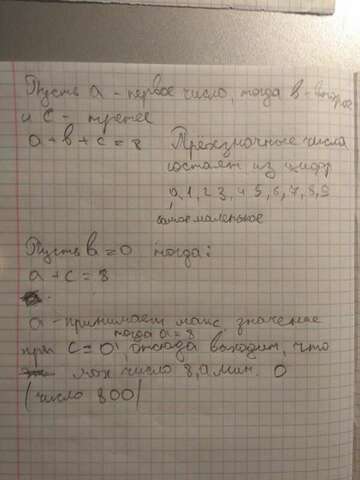 Пусть a - первое число, тогда b - второе
и c - третее
a + b + c = 8 Трехзначные числа
состоят из цифр
0, 1, 2 3, 4 5, 6, 7, 8, 9
самое маленькое
Пусть b = 0 тогда:
a + c = 8
a - принимает макс значение
тогда a = 8
при c = 0, отсюда выходит, что
мах число 8, а мин. 0
(число 800)